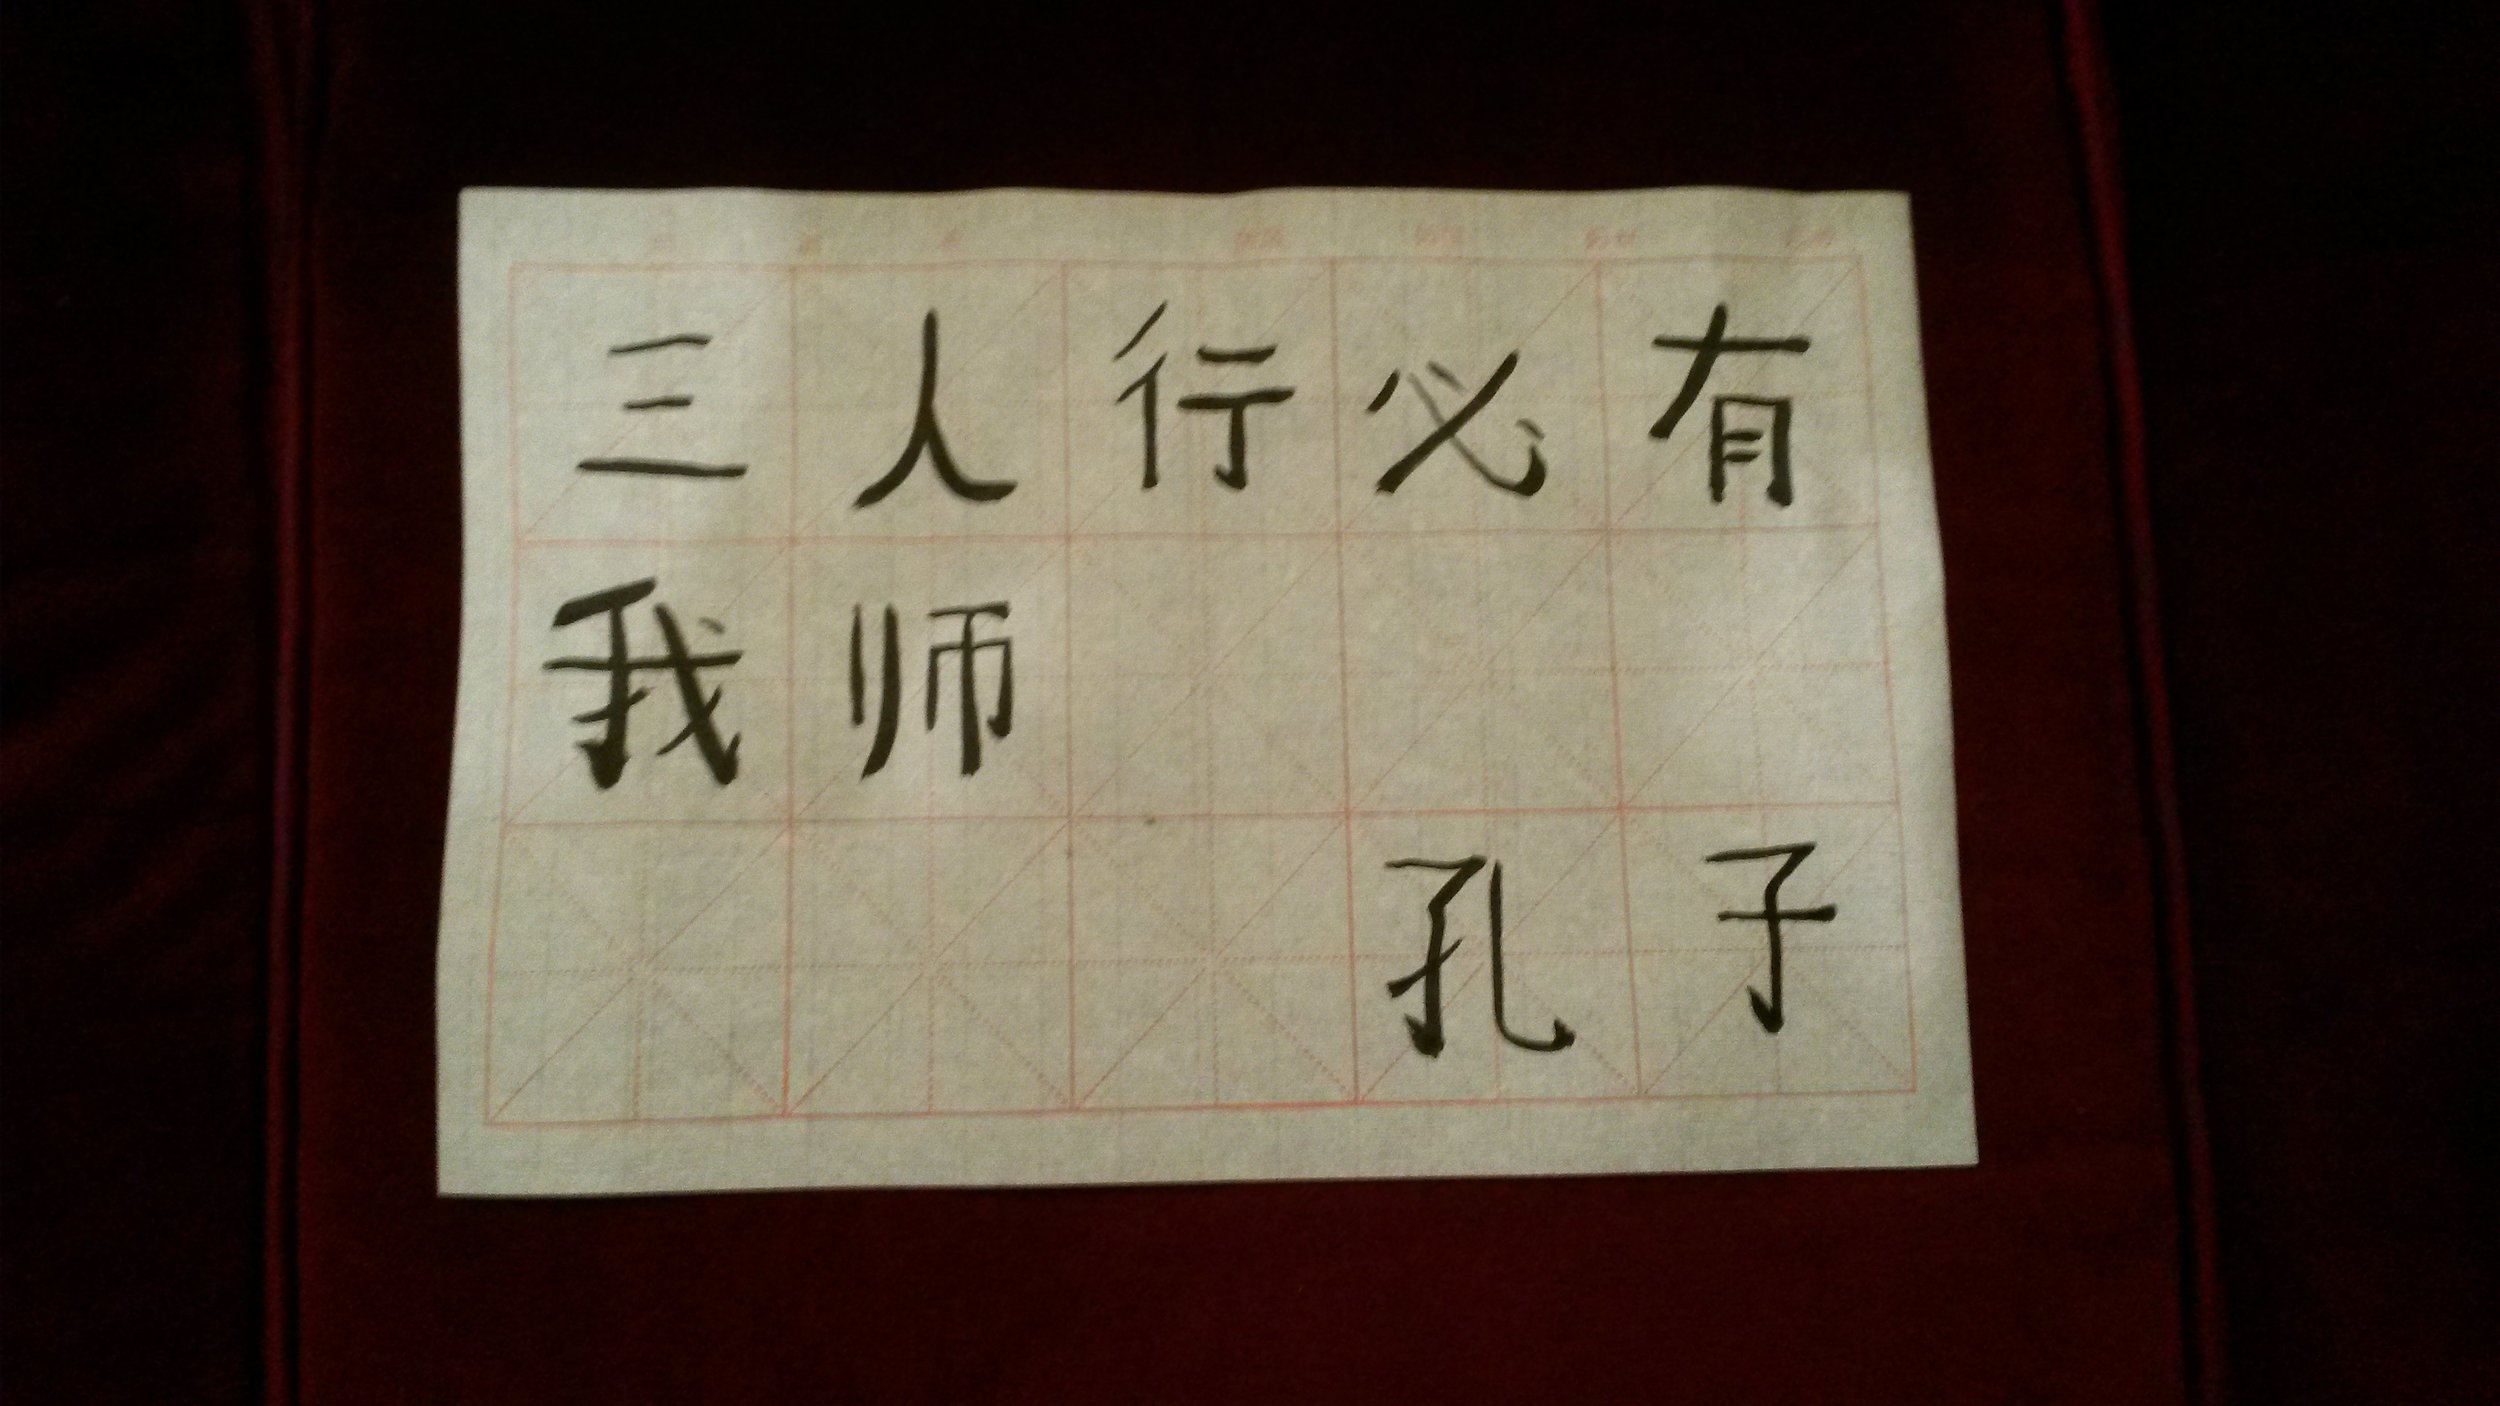 三人行必有
我师
孔子